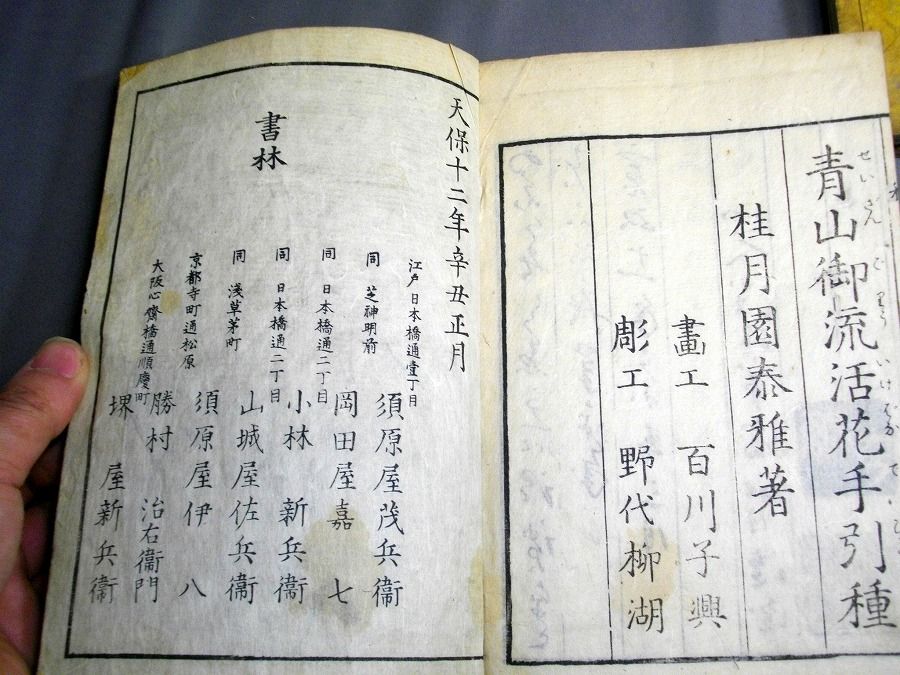 青山御流活花手引種
せいざんごりういけばなてびき
桂月園泰雅著
畫工 百川子興
彫工 野代柳湖
天保十二年辛丑正月
江戸日本橋通壹丁目 須原屋茂兵衞
同 芝神明前 岡田屋嘉七
同 日本橋通二丁目 小林新兵衞
同 日本橋通二丁目 山城屋佐兵衞
同 淺草茅町 須原屋伊八
京都寺町通松原 勝村治右衞門
大阪心齋橋通順慶町 堺屋新兵衞
書林